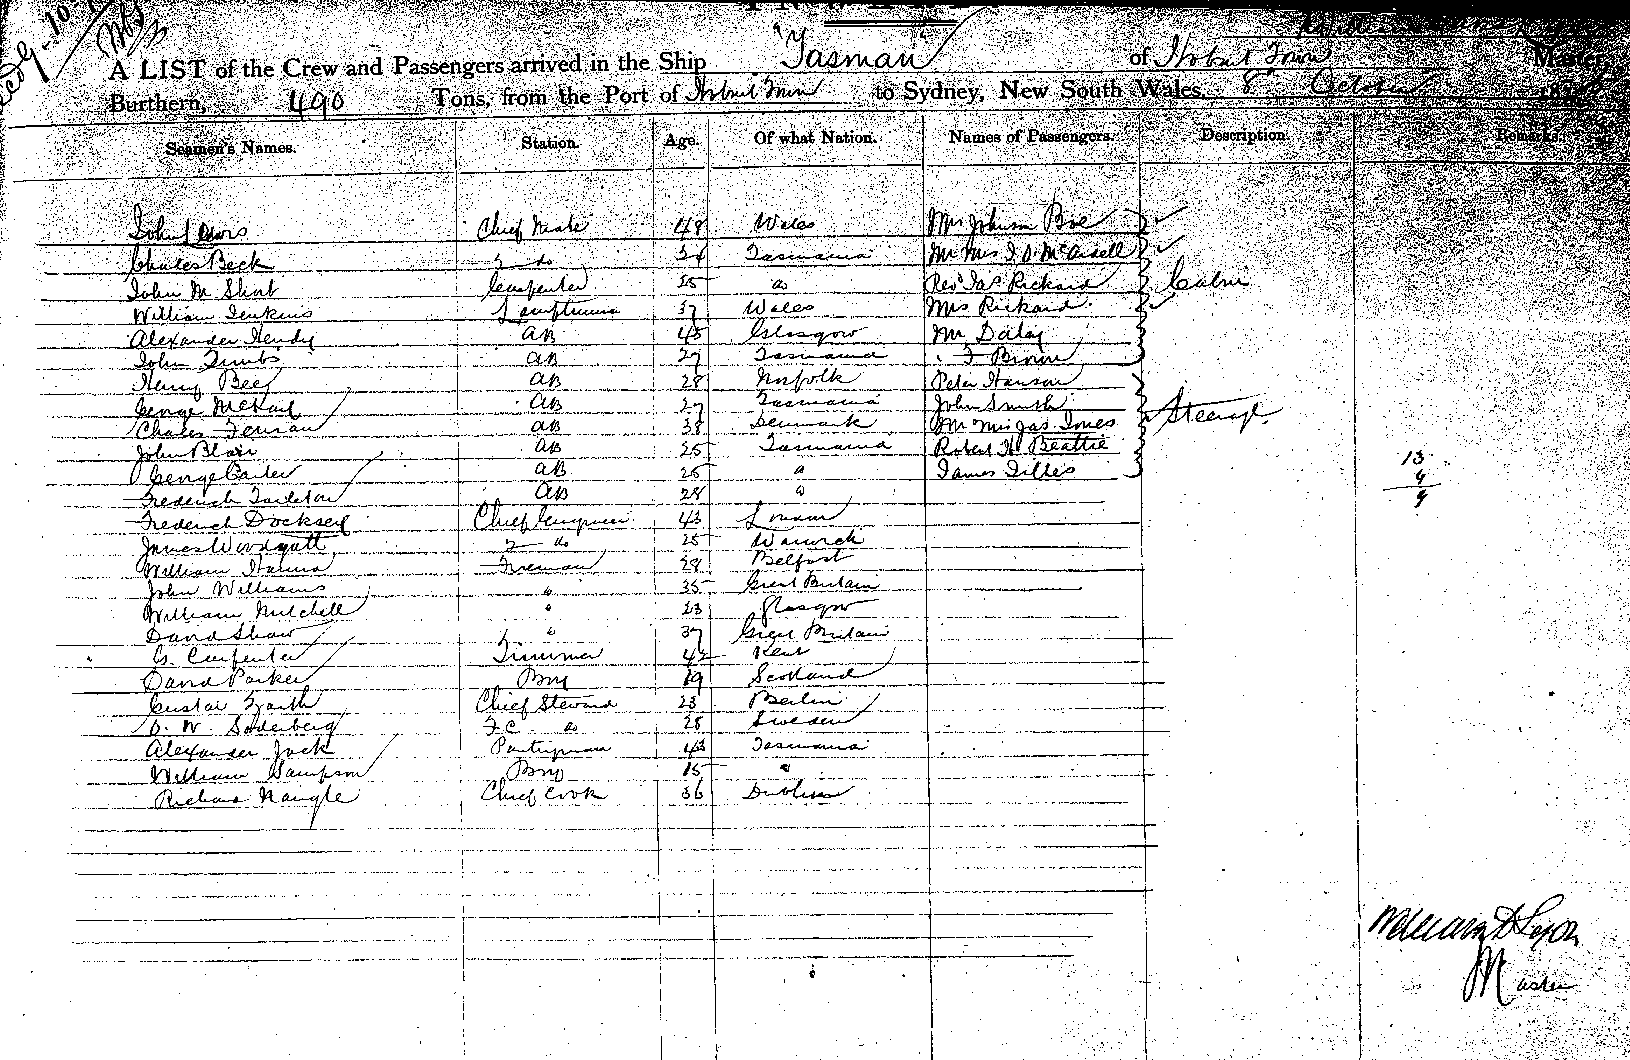 "Tasman"
A LIST of the Crew and Passengers arrived in the Ship of Hobart Town Master,
Burthern, 490 Tons, from the Port of Hobart Town to Sydney, New South Wales, 8 October
Seamen's Names. Station. Age. Of what Nation. Names of Passengers. Description. Remarks.
John Lewis Chief Mate 48 Wales Mrs Johnson Boe
Charles Beck 2 do Tasmania Mr Mrs McArdell
John M Short Carpenter 25 do Revd Jas Rickard Cabin
William Jenkins Lamptrimmer 37 Wales Mrs Rickard
Alexander Hendy AB 45 Glasgow Mr Daly
John Timbs AB 27 Tasmania " F Brown
Henry Beey AB 28 Norfolk Peter Hanson
George McKail AB 27 Tasmania John Smith Steerage
Charles AB 38 Denmark Mr Mrs Jas. Jones
John Blair AB 25 Tasmania Robert H. Beattie
George AB 25 " James Gillies
Frederick Tarleton AB 28 "
13
4
9
Frederick Docksey Chief Engineer 43 London
James Woodgatt 2 do 25 Warwick
William Hanna Fireman 38 Belfast
John Williams " 35 Great Britain
William Mitchell " 23 Glasgow
David Shaw " 37 Great Britain
G. Carpenter Trimmer 42 Kent
David Parker Boy 19 Scotland
Gustav Chief Steward 23 Berlin
O. W. Soderberg F C do 28 Sweden
Alexander Jack Pantryman 43 Tasmania
William Sampson Boy 15 "
Richard Naugle Chief Cook 36 Dublin
William Lyon
Master